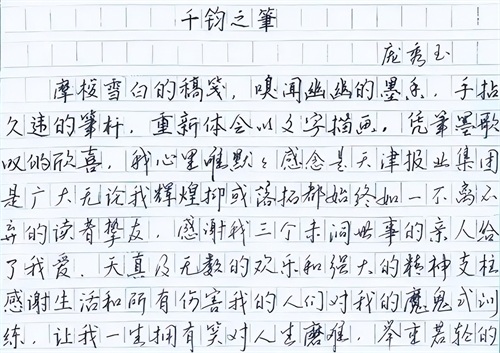 千钧之筆
庞秀玉
摩挲雪白的稿笺，嗅闻幽幽的墨香，手拈
久违的筆杆，重新体会以文字描画，凭筆墨歌
叹的欣喜，我心里唯默々感念是天津报业集团
是广大无论我輝煌抑或落拓都始终如一不离不
弃的读者挚友，感谢我三个未谙世事的亲人给
了我爱、天真及无数的欢乐和强大的精神支柱
感谢生活和所有伤害我的人们对我的魔鬼式训
练，让我一生拥有笑对人生磨难，举重若轻的